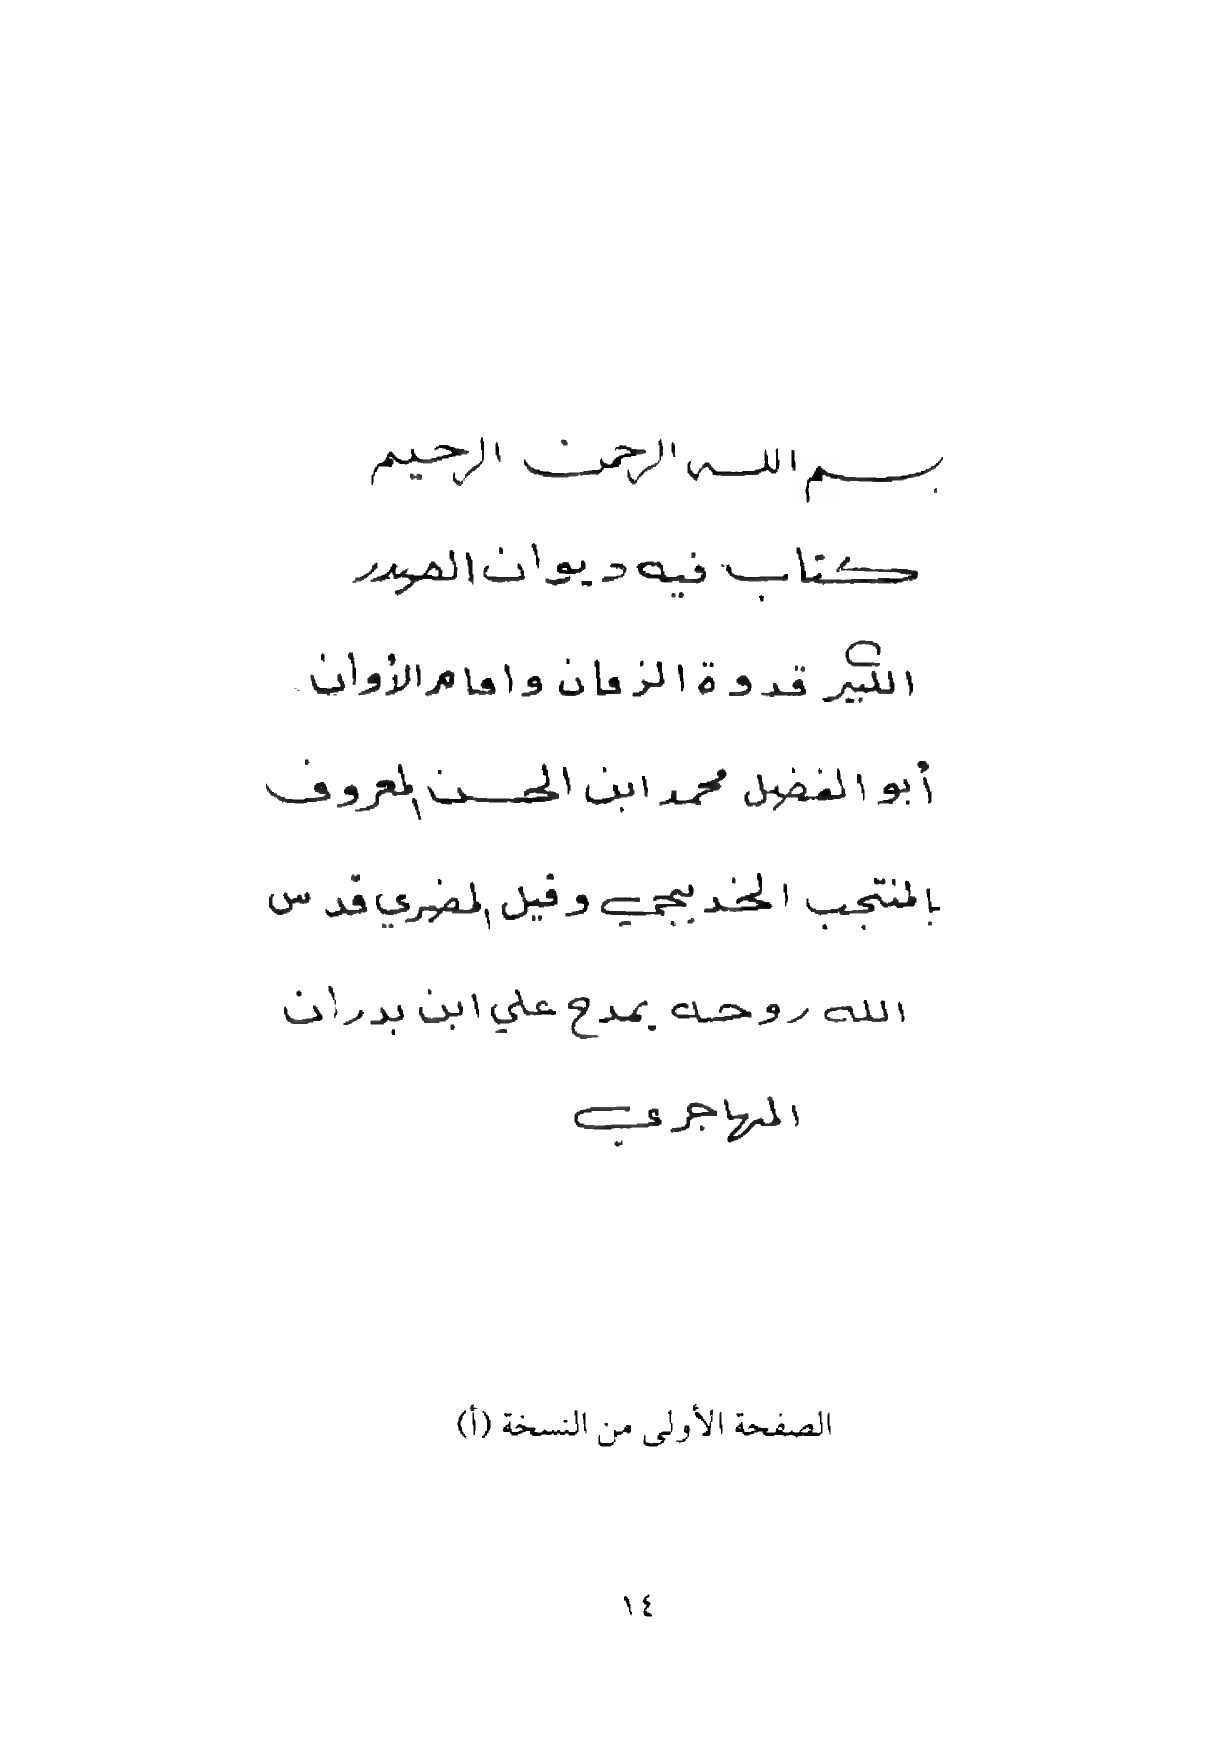 بسم الله الرحمن الرحيم
كتاب فيه ديوان الصدر
الكبير قدوة الزمان وامام الأوان
أبو الفضل محمد ابن الحسن المعروف
بالمنتجب الخديجي وقيل المضري قدس
الله روحه يمدح علي ابن بدران
المهاجري
الصفحة الأولى من النسخة (أ)
١٤